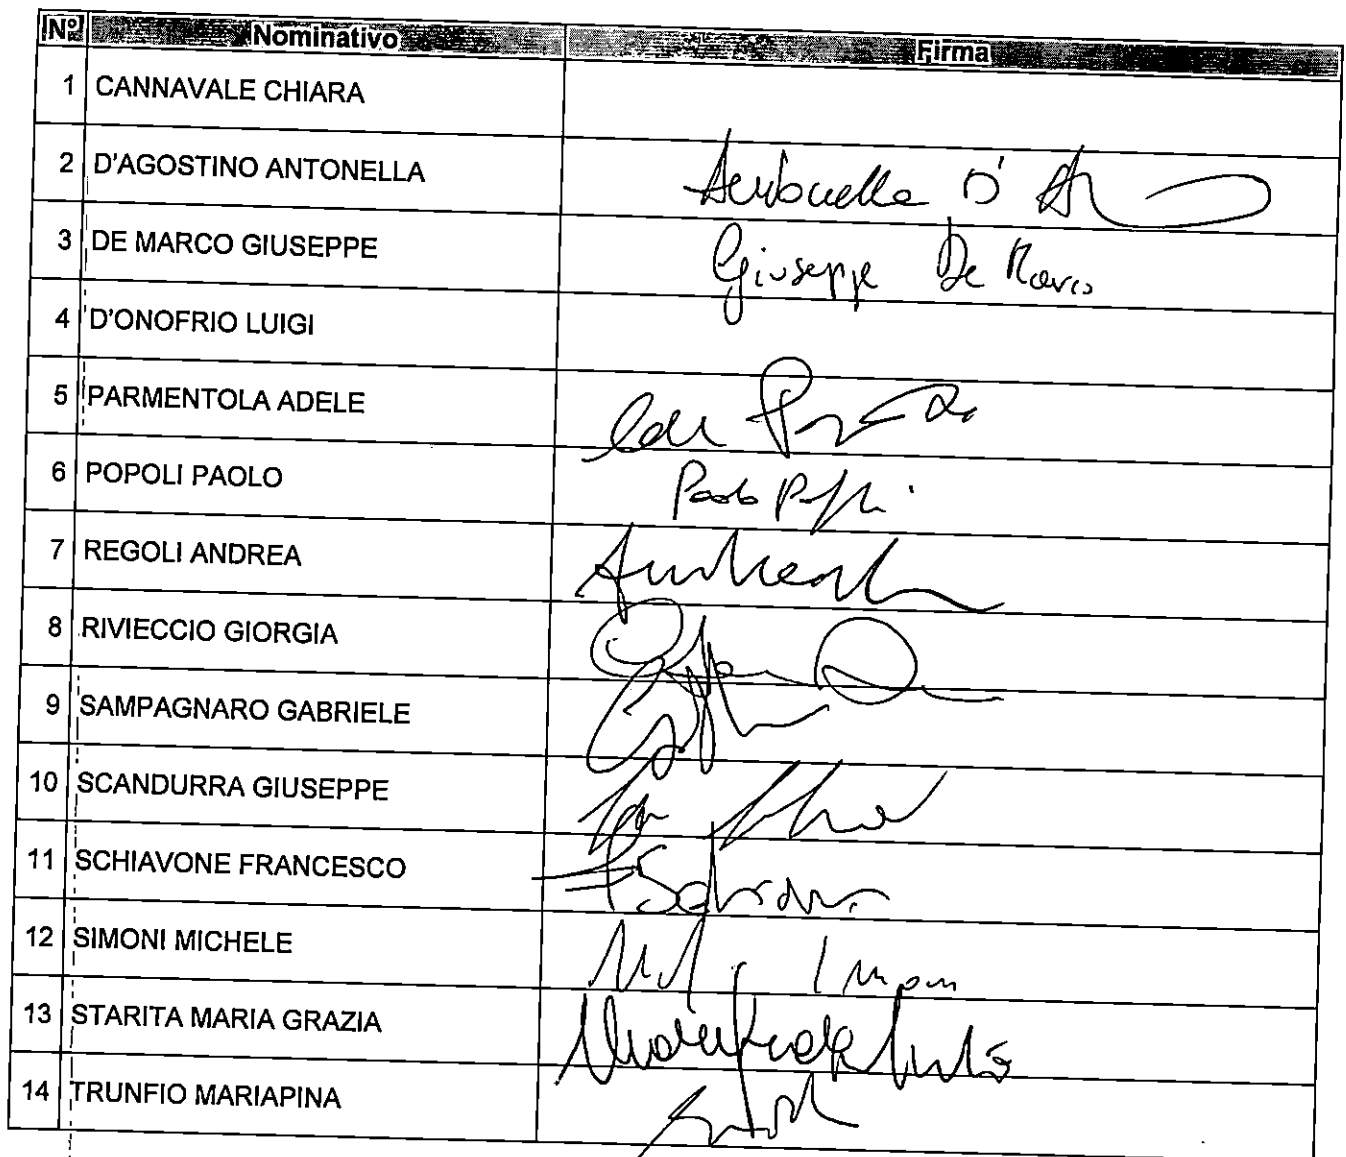 N° Nominativo Firma
1 CANNAVALE CHIARA
2 D'AGOSTINO ANTONELLA Antonella D'A
3 DE MARCO GIUSEPPE Giuseppe De Marco
4 D'ONOFRIO LUIGI
5 PARMENTOLA ADELE
6 POPOLI PAOLO Paolo Popoli
7 REGOLI ANDREA
8 RIVIECCIO GIORGIA
9 SAMPAGNARO GABRIELE
10 SCANDURRA GIUSEPPE
11 SCHIAVONE FRANCESCO
12 SIMONI MICHELE
13 STARITA MARIA GRAZIA
14 TRUNFIO MARIAPINA